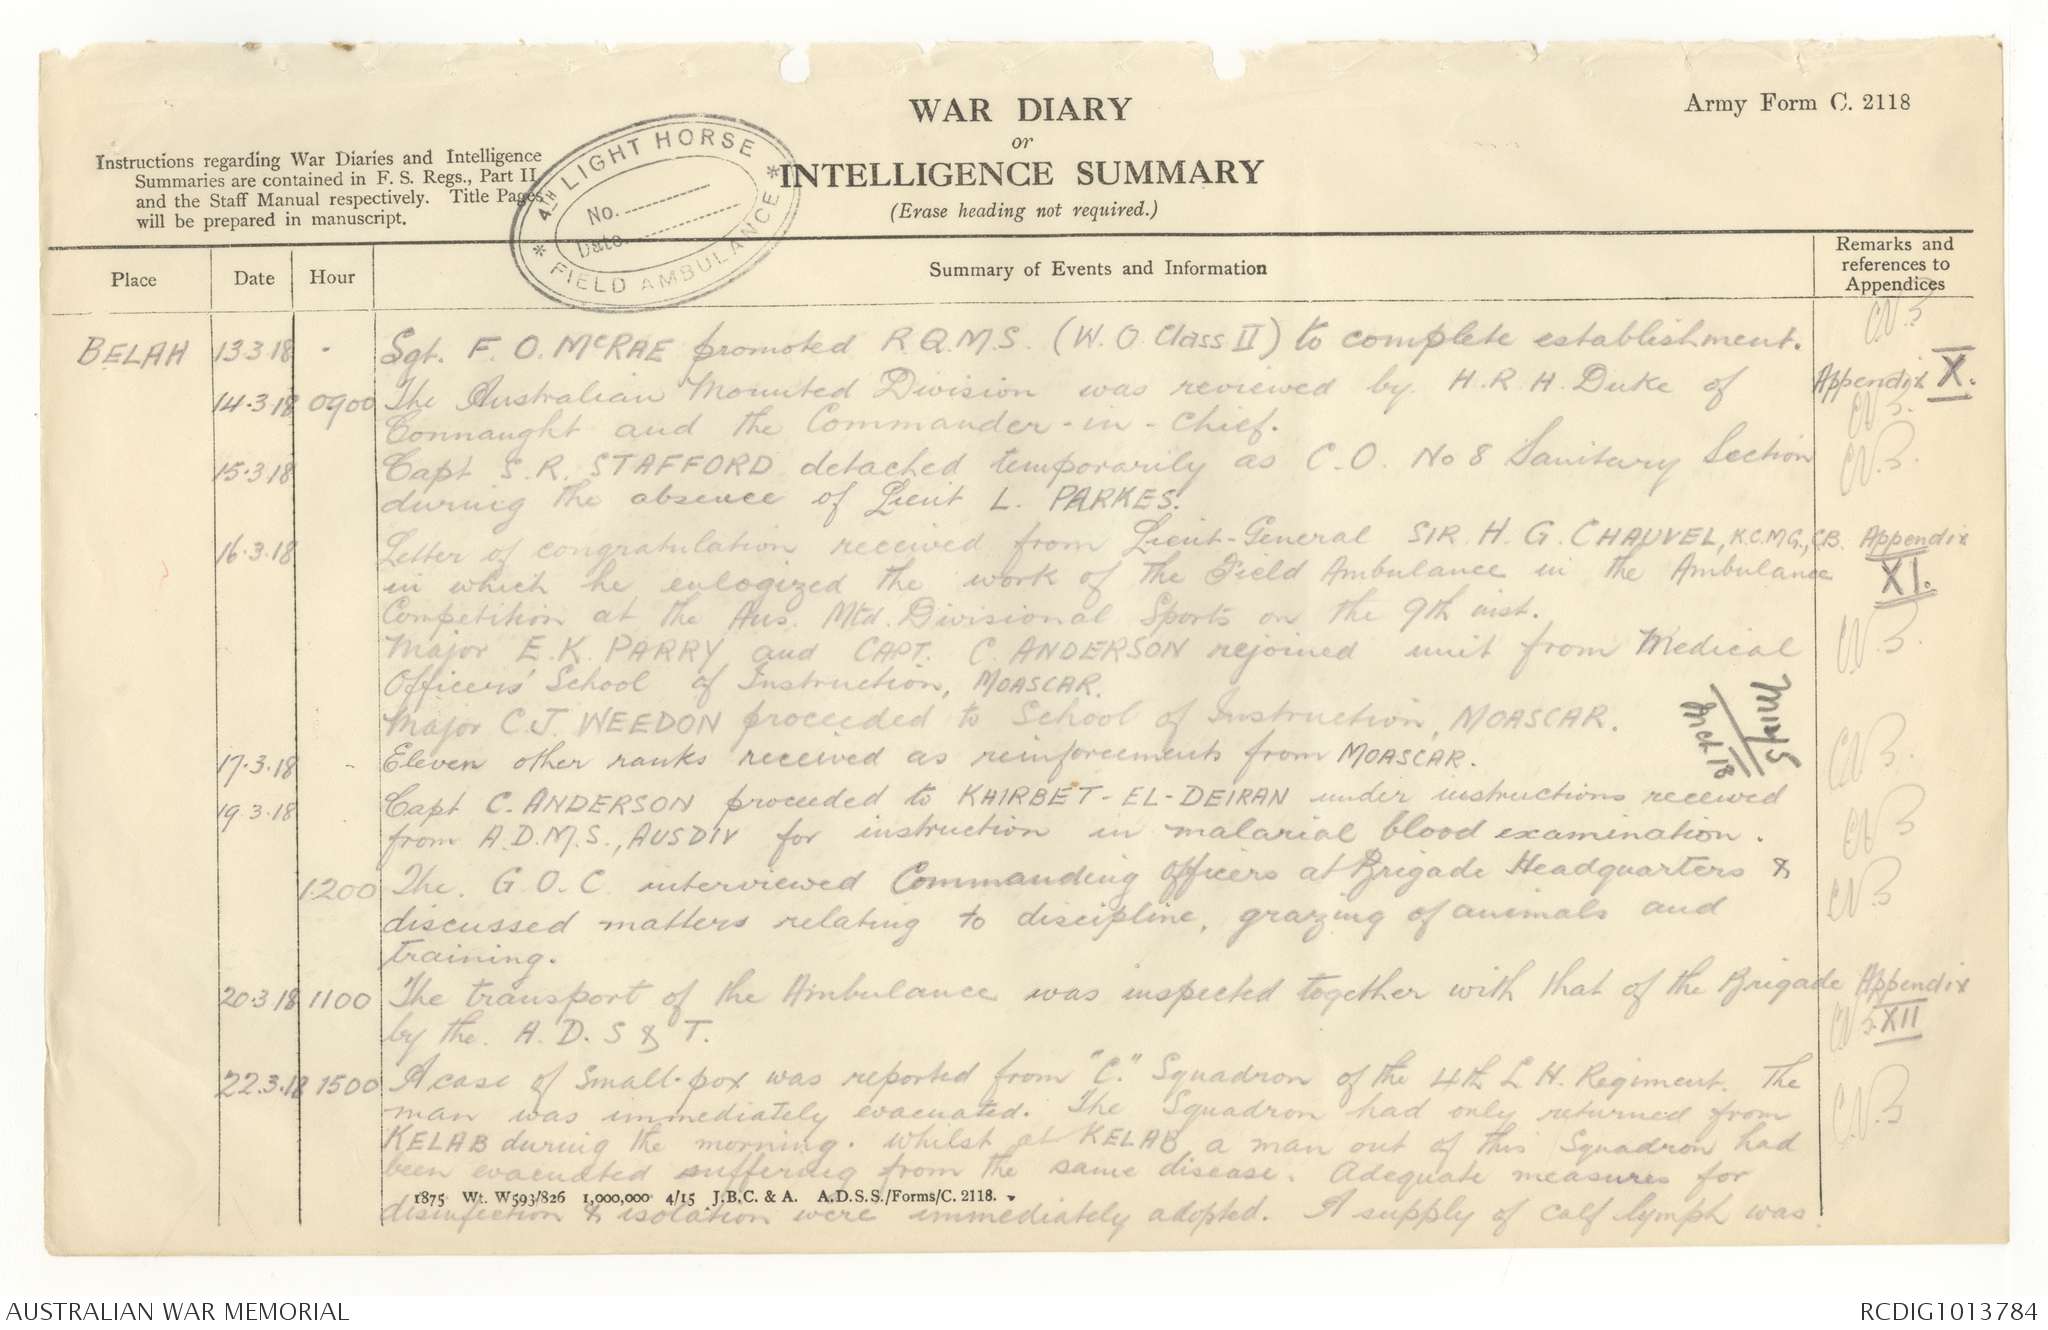 WAR DIARY
or
INTELLIGENCE SUMMARY
(Erase heading not required.)
Army Form C. 2118
Instructions regarding War Diaries and Intelligence
Summaries are contained in F. S. Regs., Part II
and the Staff Manual respectively. Title Pages
will be prepared in manuscript.
4TH LIGHT HORSE
No.
Date
FIELD AMBULANCE
Place Date Hour Summary of Events and Information Remarks and
references to
Appendices
BELAH 13.3.18 - Sgt. F. O. McRAE promoted R.Q.M.S. (W.O. Class II) to complete establishment.
14.3.18 0900 The Australian Mounted Division was reviewed by H.R.H. Duke of Appendix X.
Connaught and the Commander-in-Chief.
15.3.18 Capt S. R. STAFFORD detached temporarily as C.O. No 8 Sanitary Section
during the absence of Lieut L. PARKES.
16.3.18 Letter of congratulation received from Lieut-General SIR H. G. CHAUVEL, K.C.M.G., C.B. Appendix
in which he eulogized the work of the Field Ambulance in the Ambulance XI.
Competition at the Aus. Mtd. Divisional Sports on the 9th inst.
Major E. K. PARRY and CAPT. C. ANDERSON rejoined unit from Medical
Officers' School of Instruction, MOASCAR.
Major C.J. WEEDON proceeded to School of Instruction, MOASCAR.
17.3.18 - Eleven other ranks received as reinforcements from MOASCAR.
Mch 18
19.3.18 Capt C. ANDERSON proceeded to KHIRBET-EL-DEIRAN under instructions received
from A.D.M.S., AUSDIV for instruction in malarial blood examination.
1200 The G.O.C. interviewed Commanding Officers at Brigade Headquarters &
discussed matters relating to discipline, grazing of animals and
training.
20.3.18 1100 The transport of the Ambulance was inspected together with that of the Brigade Appendix
by the A. D. S & T. XII
22.3.18 1500 A case of small-pox was reported from "C." Squadron of the 4th L H. Regiment. The
man was immediately evacuated. The Squadron had only returned from
KELAB during the morning. Whilst at KELAB a man out of this Squadron had
been evacuated suffering from the same disease. Adequate measures for
1875 Wt. W593/826 1,000,000 4/15 J.B.C. & A. A.D.S.S./Forms/C. 2118.
disinfection & isolation were immediately adopted. A supply of calf lymph was
AUSTRALIAN WAR MEMORIAL
RCDIG1013784